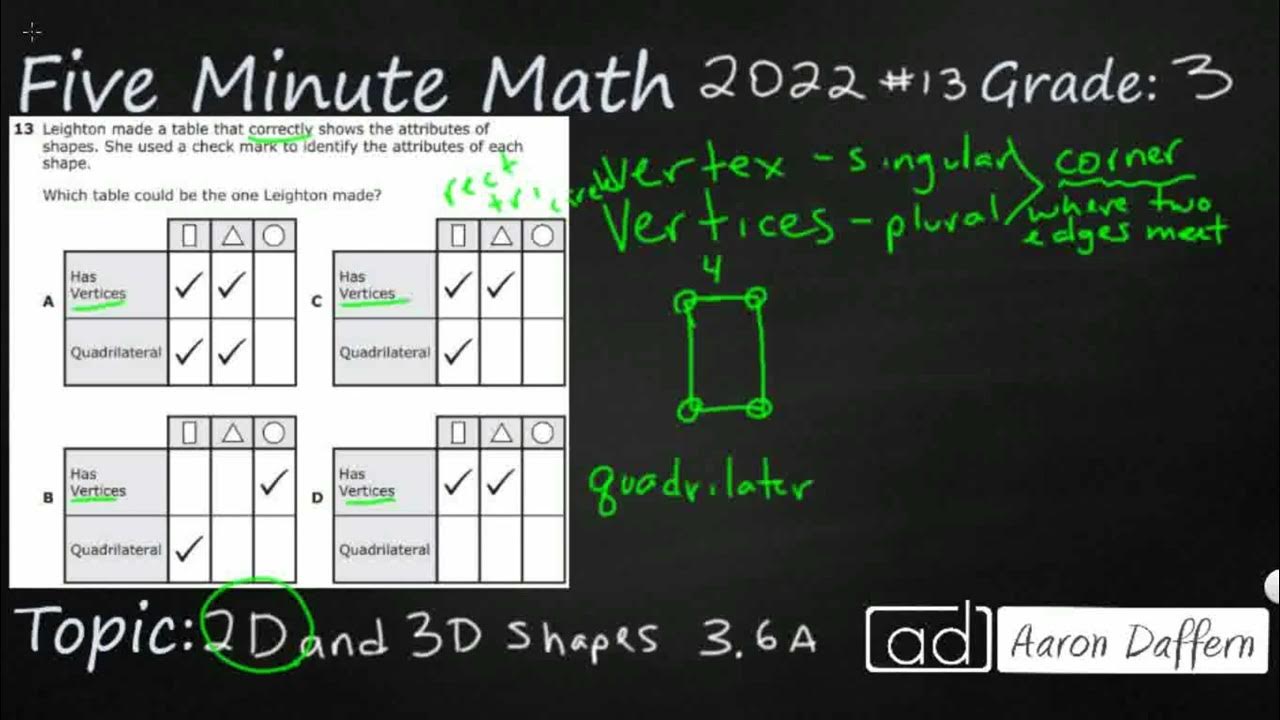 Five Minute Math 2022 #13 Grade: 3
13 Leighton made a table that correctly shows the attributes of
shapes. She used a check mark to identify the attributes of each
shape.
Which table could be the one Leighton made?
rect
tri
circle
A
Has
Vertices
Quadrilateral
C
Has
Vertices
Quadrilateral
B
Has
Vertices
Quadrilateral
D
Has
Vertices
Quadrilateral
Vertex - singular
Vertices - plural
corner
where two
edges meet
4
quadrilater
Topic: 2D and 3D Shapes 3.6A
ad Aaron Daffern